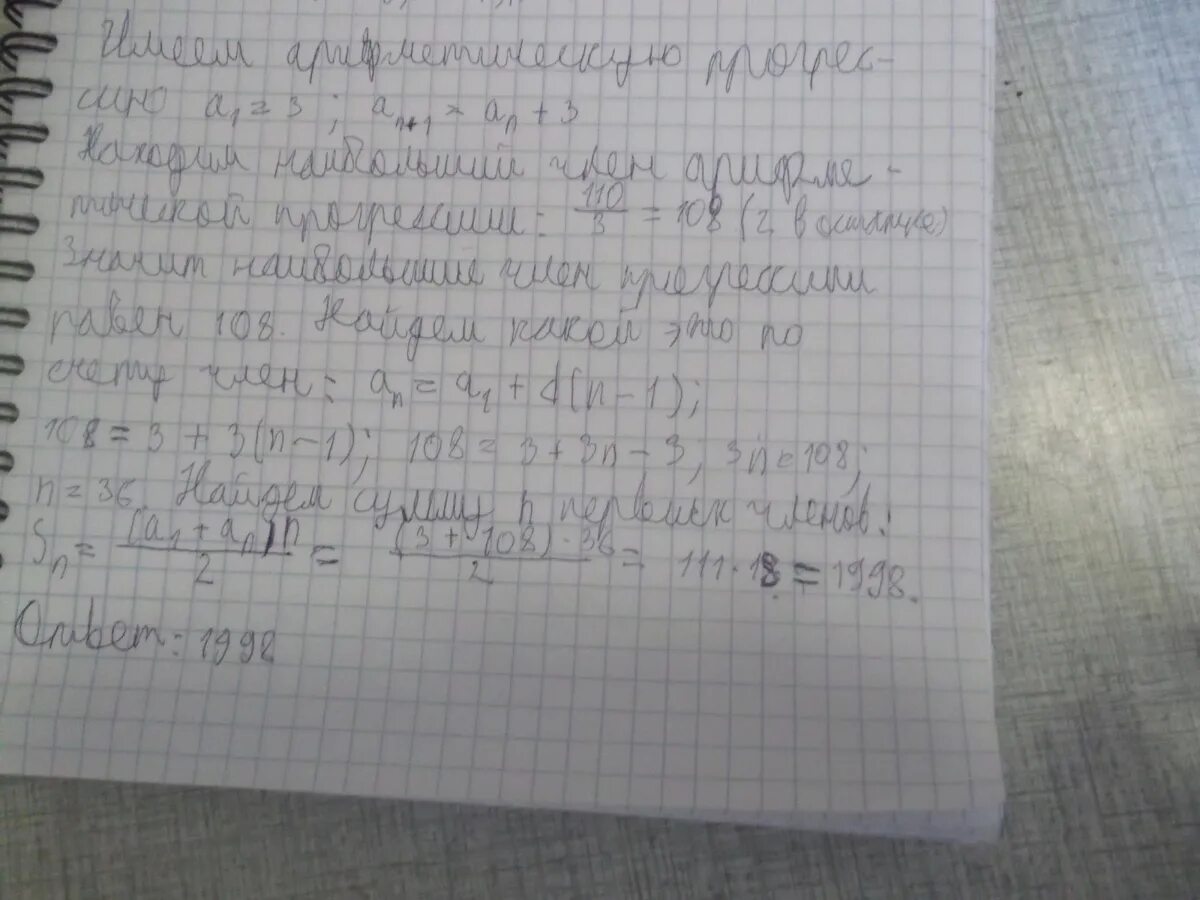 Имеем арифметическую прогрес-
сию a₁ = 3; aₙ₊₁ = aₙ + 3
Находим наибольший член арифме-
тической прогрессии: 110/3 = 108 (2 в остатке)
Значит наибольший член прогрессии
равен 108. Найдем какой это по
счету член: aₙ = a₁ + d(n-1);
108 = 3 + 3(n-1); 108 = 3 + 3n - 3; 3n = 108;
n = 36 Найдем сумму n первых членов:
Sₙ = (a₁ + aₙ)n/2 = (3 + 108)·36/2 = 111·18 = 1998.
Ответ: 1998